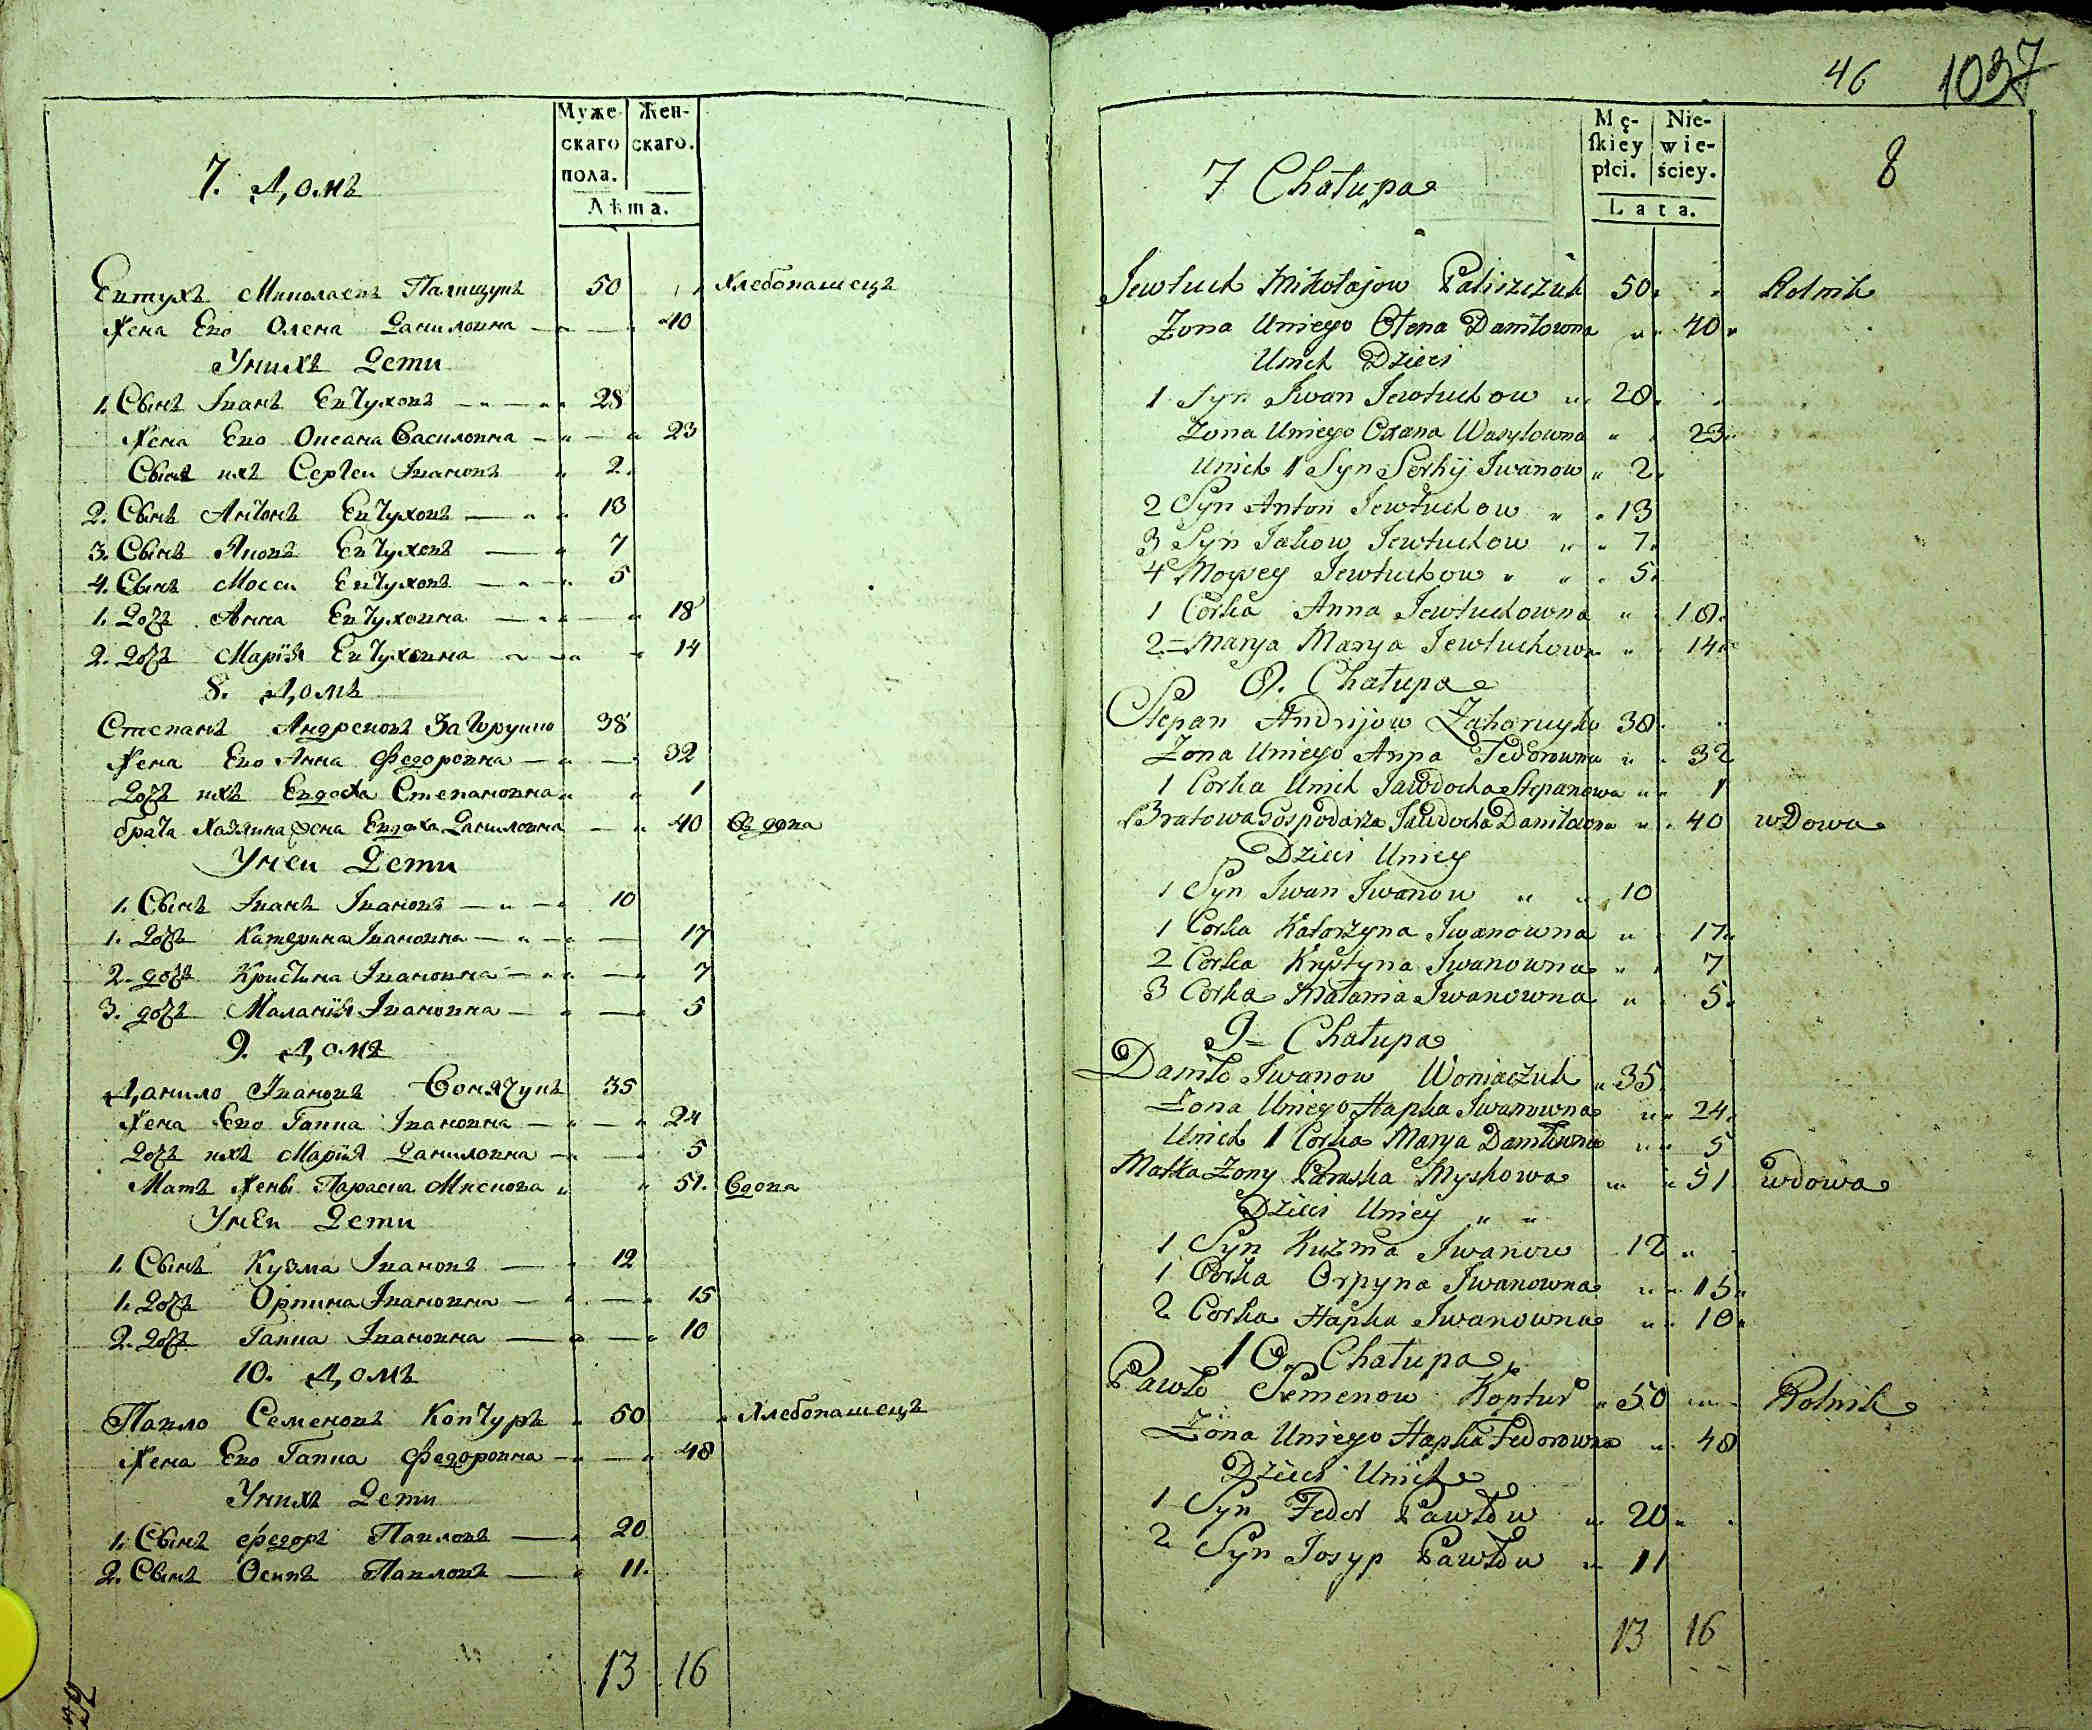 Муже-
скаго
пола.
Жен-
скаго.
Лѣта.
7. Домъ
Евтухъ Миколаевъ Палищукъ 50 Хлебопашецъ
Жена Его Олена Даниловна 40
Унихъ Дети
1. Сынъ Іванъ Евтуховъ 28
Жена Его Оксана Василовна 23
Сынъ ихъ Сергеи Івановъ 2.
2. Сынъ Антонъ Евтуховъ 13
3. Сынъ Яковъ Евтуховъ 7
4. Сынъ Мосеи Евтуховъ 5
1. Дочъ Анна Евтуховна 18
2. Дочъ Марія Евтуховна 14
8. Домъ
Степанъ Андреювъ Загоруико 38
Жена Его Анна Федоровна 32
Дочъ ихъ Евдоха Степановна 1
брата Хазяина жена Евдоха Даниловна 40 Вдова
Унеи Дети
1. Сынъ Іванъ Івановъ 10
1. Дочъ Катерина Івановна 17
2. дочъ Кристина Івановна 7
3. дочъ Маланія Івановна 5
9. Домъ
Данило Івановъ Вонячукъ 35
Жена Его Гапка Івановна 24
Дочъ ихъ Марія Даниловна 5
Матъ Жены Параска Мискова 51. Вдова
Унеи Дети
1. Сынъ Кузма Івановъ 12
1. Дочъ Орпина Івановна 15
2. Дочъ Гапка Івановна 10
10. Домъ
Павло Семеновъ Коптуръ 50 Хлебопашецъ
Жена Его Гапка Федоровна 48
Унихъ Дети
1. Сынъ Федоръ Павловъ 20
2. Сынъ Осипъ Павловъ 11.
13 16
46 1037
Mę-
ſkiey
płci.
Nie-
wie-
ściey.
Lata.
8
7 Chałupa
Jewtuch Mikołajow Paliszczuk 50 Rolnik
Żona Uniego Ołena Daniłowna 40
Unich Dzieci
1 Syn Iwan Jewtuchow 28
Żona Uniego Oxana Wasylowna 23
Unich 1 Syn Serhij Iwanow 2
2 Syn Anton Jewtuchow 13
3 Syn Jakow Jewtuchow 7
4 Moysey Jewtuchow 5
1 Corka Anna Jewtuchowna 18
2 = Marya Marya Jewtuchowa 14
8. Chałupa
Stepan Andrijow Zahoruyko 38
Żona Uniego Anna Fedorowna 32
1 Corka Unich Jawdocha Stepanowa 1
Bratowa Gospodarza Jawdocha Daniłowna 40 wdowa
Dzieci Uniey
1 Syn Iwan Iwanow 10
1 Corka Katarzyna Iwanowna 17
2 Corka Krystyna Iwanowna 7
3 Corka Małania Iwanowna 5
9 = Chałupa
Daniło Iwanow Woniaczuk 35
Żona Uniego Hapka Iwanowna 24
Unich 1 Corka Marya Daniłowna 5
Matka Żony Paraska Myskowa 51 wdowa
Dzieci Uniey
1 Syn Kuzma Iwanow 12
1 Corka Orpyna Iwanowna 15
2 Corka Hapka Iwanowna 10
10 Chałupa
Pawło Semenow Koptur 50 Rolnik
Żona Uniego Hapka Fedorowna 48
Dzieci Unich
1 Syn Fedor Pawłow 20
2 Syn Josyp Pawłow 11
13 16